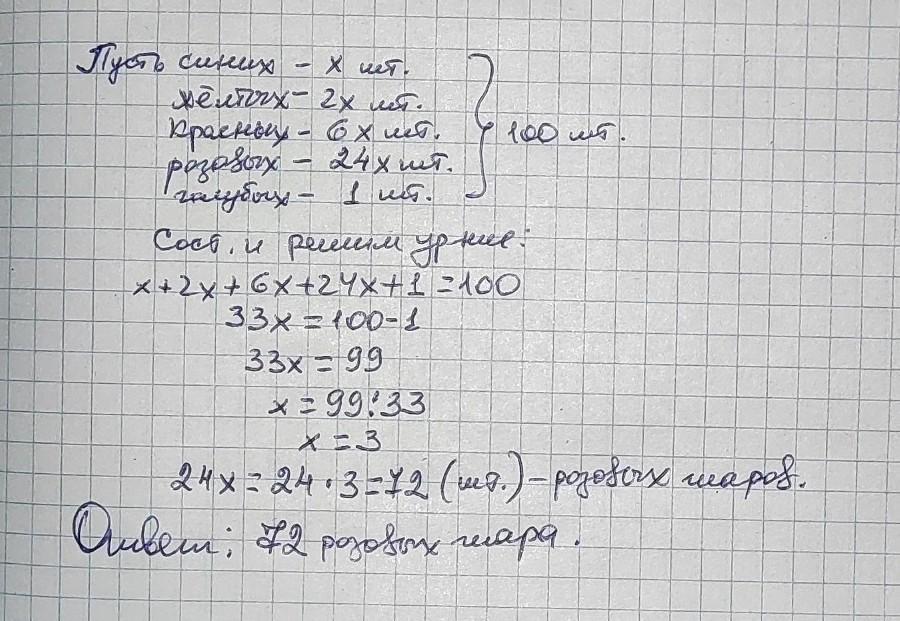 Пусть синих – х шт.
жёлтых – 2х шт.
красных – 6х шт.
розовых – 24х шт.
голубых – 1 шт.
100 шт.
Сост. и решим ур-ние:
х+2х+6х+24х+1=100
33х=100-1
33х=99
х=99:33
х=3
24х=24·3=72 (шт.) – розовых шаров.
Ответ: 72 розовых шара.